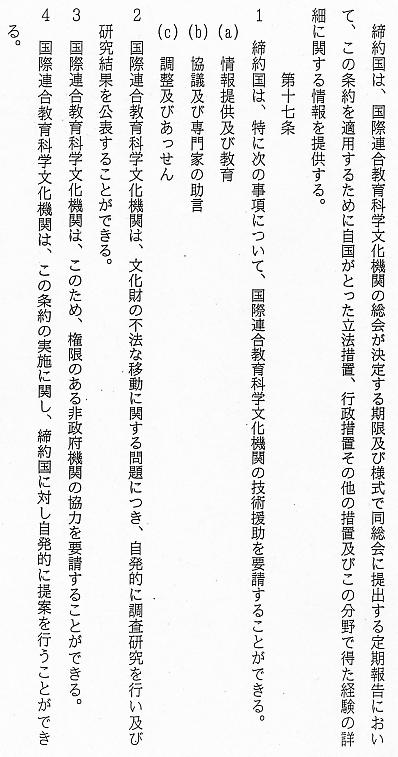 締約国は、国際連合教育科学文化機関の総会が決定する期限及び様式で同総会に提出する定期報告におい
て、この条約を適用するために自国がとった立法措置、行政措置その他の措置及びこの分野で得た経験の詳
細に関する情報を提供する。
第十七条
1 締約国は、特に次の事項について、国際連合教育科学文化機関の技術援助を要請することができる。
(a) 情報提供及び教育
(b) 協議及び専門家の助言
(c) 調整及びあっせん
2 国際連合教育科学文化機関は、文化財の不法な移動に関する問題につき、自発的に調査研究を行い及び
研究結果を公表することができる。
3 国際連合教育科学文化機関は、このため、権限のある非政府機関の協力を要請することができる。
4 国際連合教育科学文化機関は、この条約の実施に関し、締約国に対し自発的に提案を行うことができ
る。